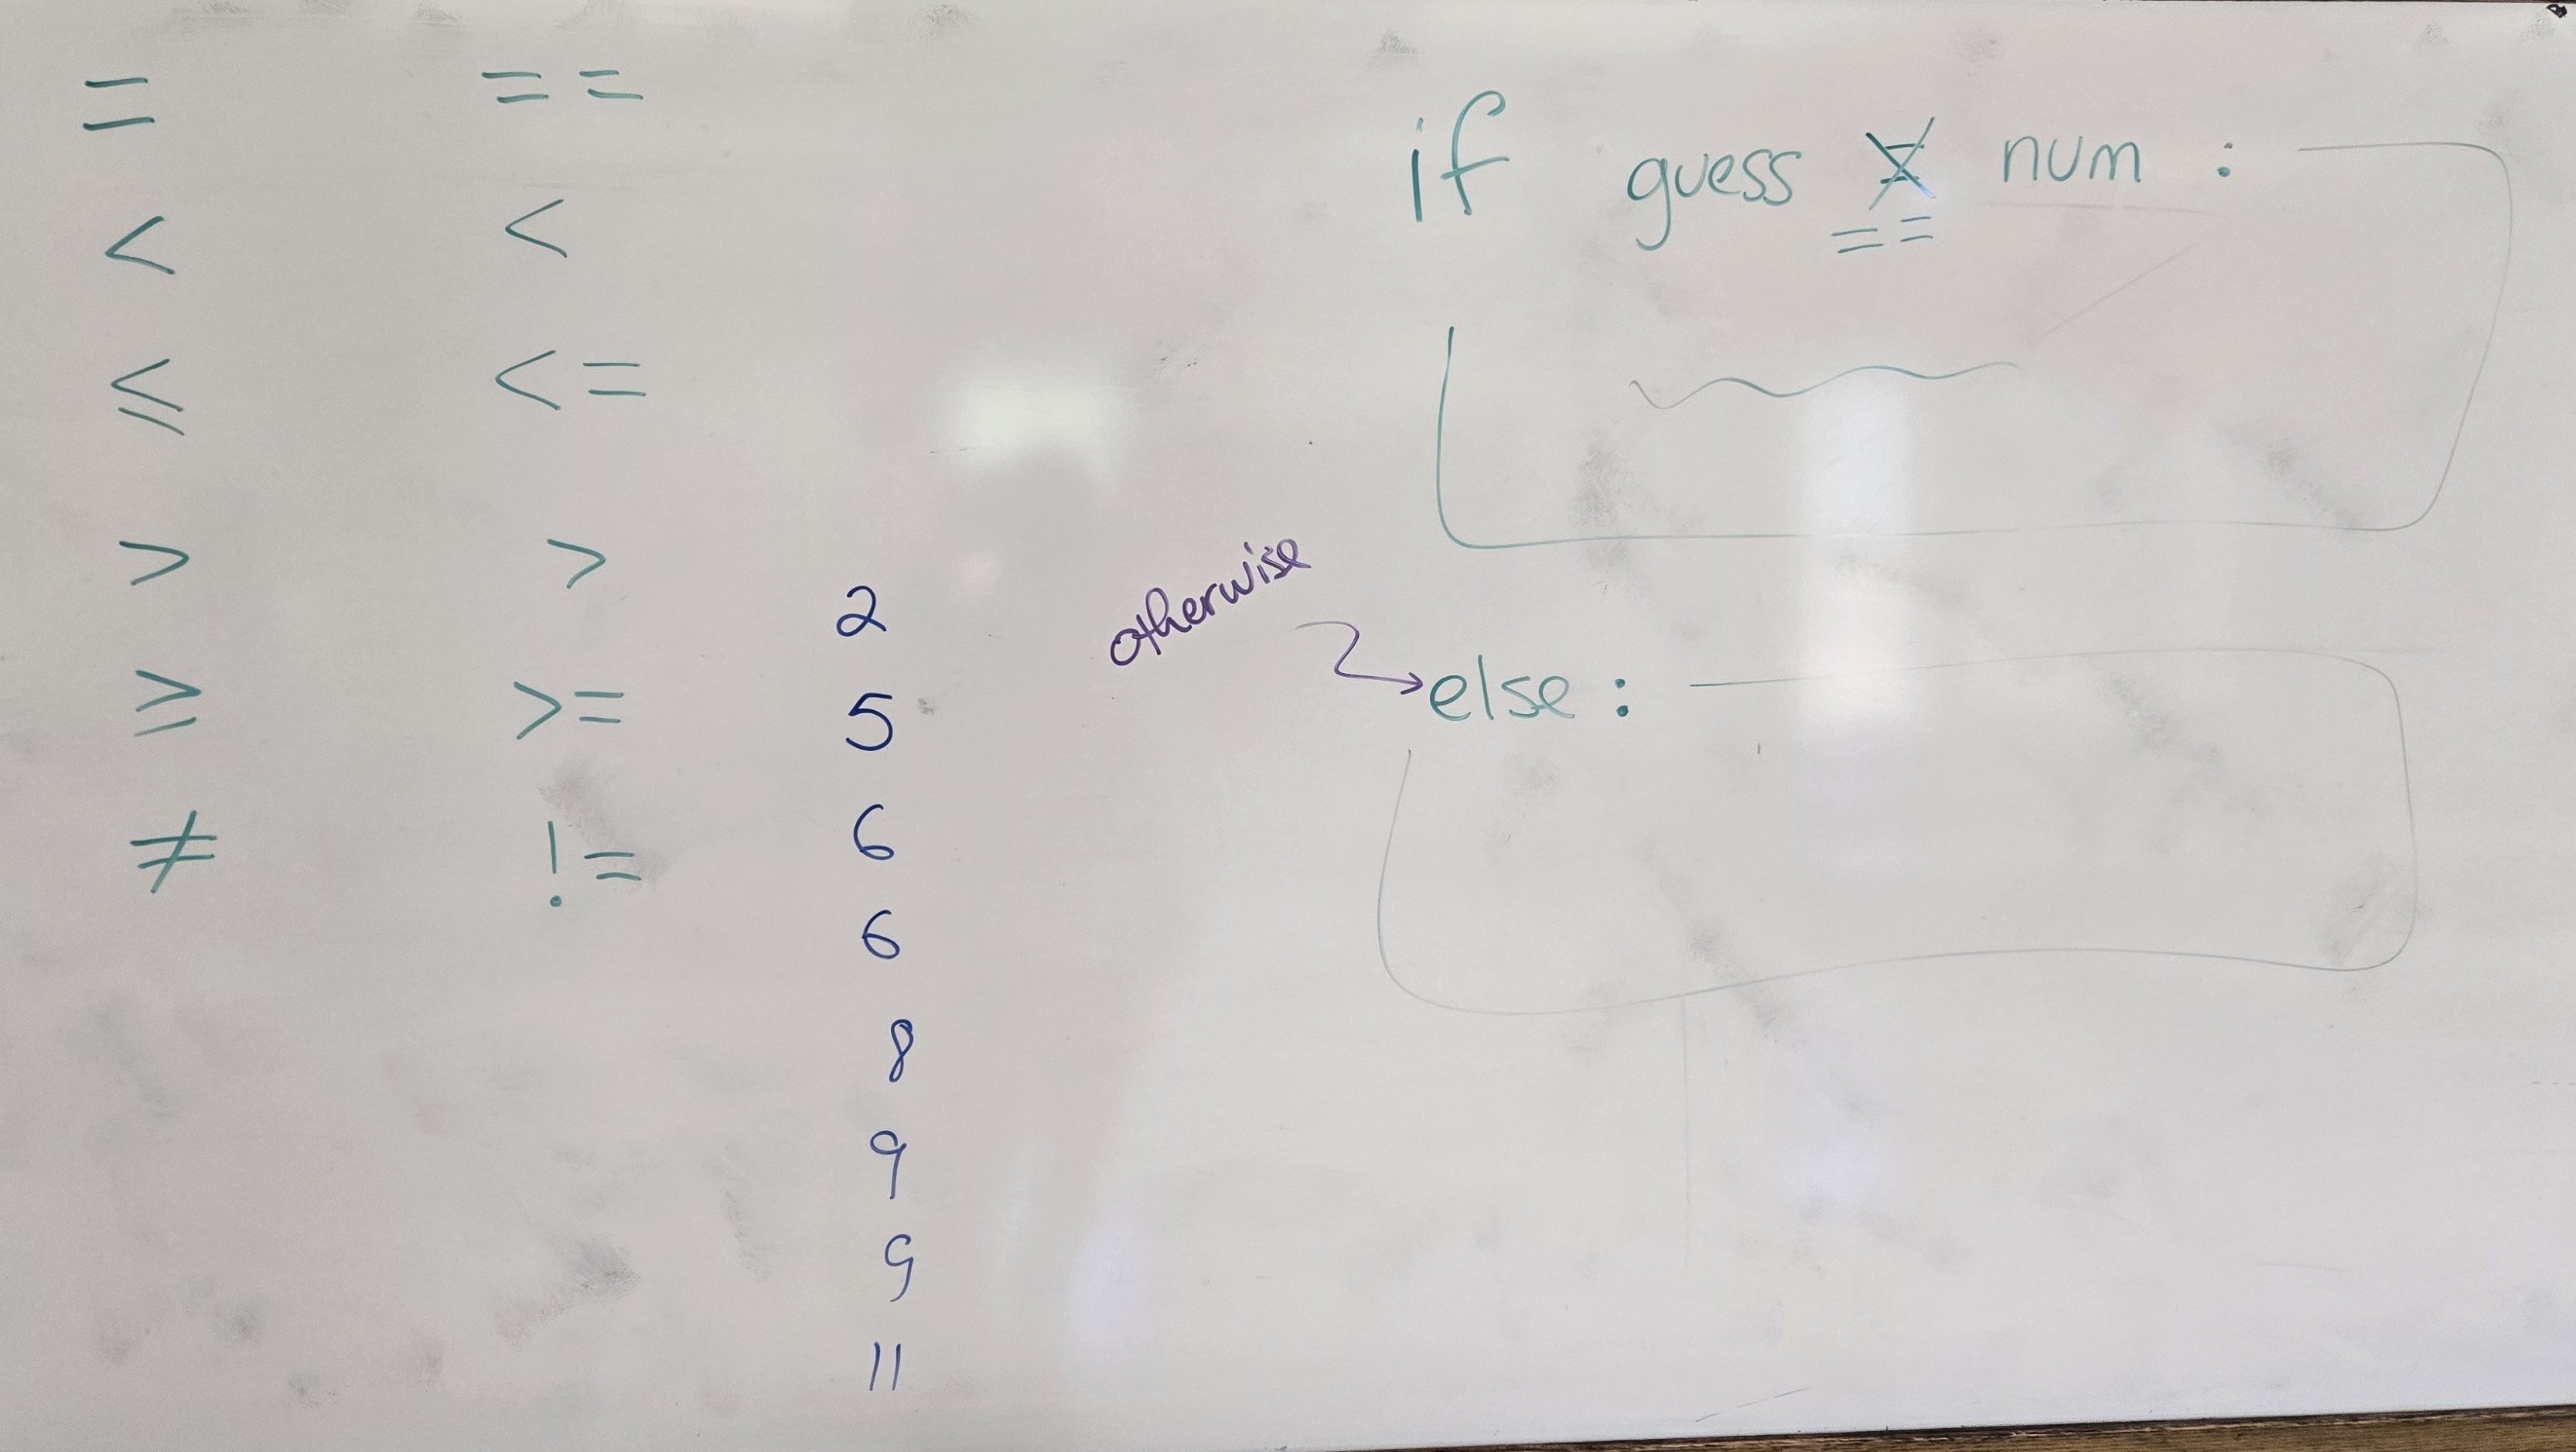 = ==
< <
≤ <=
> >
≥ >=
≠ !=
2
5
6
6
8
9
9
11
if guess = num :
==
otherwise
else :